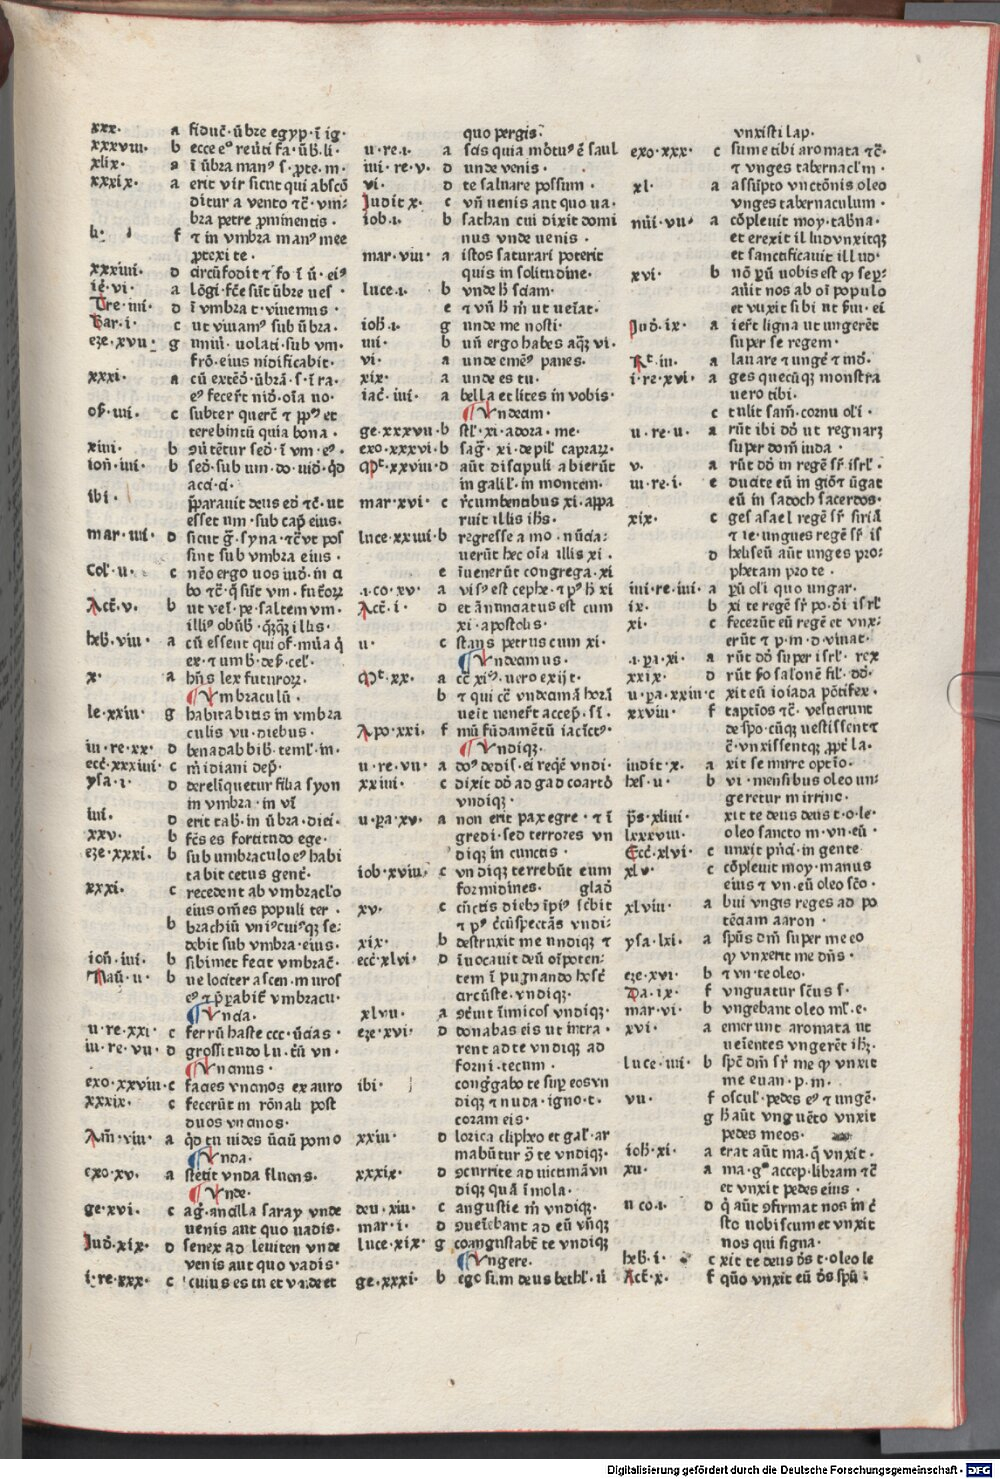 xxx· a fiduc̄· ūbre egyp· ī ig·
xxxviii· b ecce eº reūti fa· ūb̄· li·
xlix· a ī ūbra manꝰ s· ꝓte· m·
xxxix· a erit vir sicut qui abscō
ditur a vento ⁊c̄· vm-
bra petre ꝓminentis·
li· f ⁊ in vmbra manꝰ mee
ꝓtexi te·
xxxiiii· d circūfodit ⁊ fo· ī ū· eiꝰ
iē· vi· a
Tre· iiii· d ī vmbra t· viuemus·
Bar· i· c ut viuamꝰ sub ūbra·
eze· xvii· g nimi· uolati· sub vm·
frō· eius nidificabit·
xxxi· a cū extēō· ūbrā· s· ī ra·
eꝰ fecer̄t nid̄· oīa uo·
os̄· iiii· c subter querc̄ ⁊ pp̄ꝰ et
terebintū quia bona·
xiiii· b
ion̄· iiii· b sed̄· sub um· do· uid̄· q̄d
acci· ci·
ibi· p̄parauit deus ed̄ ⁊c̄· ut
esset um· sub cap̄ eius·
mar· iiii· d sicut g̃· syna· ⁊c̄ vt pos
sint sub vmbra eius·
Col̄· ii· c nēo ergo uos iud̄· in ci
bo ⁊c̄· q̄ sūt vm· futōꝝ
Act̄· v· b ut vel̄· pe· saltem vm·
illiꝰ obūb̄· q̄ꝫq̄ꝫ illis·
heb̄· viii· a cū essent qui of̄· mūa q̄
ex· ⁊ umb̄· des̄· cel̄·
x· a hn̄s lex futuroꝝ·
Vmbraculū·
le· xxiii· g habitabitis in vmbra
culis vii· diebus·
iii· re· xx· d benadab bib̄· teml̄· in·
ecc̄· xxxiiii· c m̄idiani dep̄·
ysa· i· d derelīquetur filia syon
in vmbra· in vī
iiii· d erit tab̄· in ūbra· diei·
xxv· b fc̄s es fortitudo ege·
eze· xxxi· b sub umbraculo eꝰ habi
tabit cetus gent̄·
xxxi· c recedent ab vmbracl̄o
eius om̄es populi ter·
b brachiū vniꝰcuiꝰqꝫ se-
debit sub vmbra· eius·
ion̄· iiii· b sibimet fecit vmbrac̄·
Naū· ii· b uelociter ascen· muros
eꝰ ⁊ p̄parabit̄ vmbracu·
Vncia·
ii· re· xxi· c ferrū haste ccc· ūcias·
iii· re· vii· d grossitudo lu· t̄ū vn·
Vncinus·
exo· xxviii· c facies vncinos ex auro
xxxix· c fecerūt in rōnali post
duos vncinos·
Am̄· viii· a q̄d tu uides ūciū pomo
Vnda·
exo· xv· a stetit vnda fluens·
Vnde·
ge· xvi· c ag̃· ancilla saray vnde
uenis aut quo uadis·
Iud̄· xix· d senex ad leuiten vnde
venis aut quo vadis·
i· re· xxx· c cuius es tu et vnde et
quo pergis·
ii· re· i· a scis quia mōtuꝰ ē saul
iiii· re· v· d unde venis·
vi· d te saluare possum·
Iudit x· c vn̄ uenis aut quo ua·
iob· i· b sathan cui dixit domi
nus vnde uenis·
mar· viii· a istos saturari poterit
quis in solitudine·
luce· i· b vnde h̄ sciam·
e ⁊ vn̄ h̄ m̄ ut ueīat·
ioh̄· i· g unde me nosti·
iiii· b un̄ ergo habes aq̄ꝫ vi·
vi· a unde emēꝰ panes·
xix· a unde es tu·
iac̄· iiii· a bella et lites in vobis·
Vndecim·
ge· xxxvii· b stl̄· xi· adora· me·
exo· xxxvi· b sag̃· xi· de pil̄· capraꝝ·
Mt̄· xxviii· d aūt discipuli abierūt
in galil̄· in montem·
mar· xvi· c r̄cumbentibus xi· appa
ruit illis ih̄s·
luce· xxiiii· b regresse a mo· nūcia-
uerūt hec oīa illis xi·
e īuenerūt congrega· xi
i· co· xv· a visꝰ est cephe· ⁊ pꝰ h̄ xi
Act̄· i· d et ānunciatus est cum
xi· apostolis·
ii· c stans petrus cum xi·
Vndecimus·
Mt̄· xx· a cc̄ xiꝰ· uero exijt·
b ⁊ qui cc̄ vndecimā horā
ueit uener̄t accep̄· sī·
Apo· xxi· f mū fūdamētū iacīctꝰ·
Vndiqꝫ·
ii· re· vii· a
xxiiii· c dixit dd̄ ad gad coartō
vndiqꝫ·
ii· pa· xv· a non erit pax egre· ⁊ ī
gredi· sed terrores vn
diqꝫ in cunctis·
iob· xviii· c vndiqꝫ terrebūt eum
formidines· gladō
xv· c
xix· b destruxit me undiqꝫ ⁊
ecc̄· xlvi· d īuocauit deū oīpoten-
tem ī pugnando hosc̄
circūste· vndiqꝫ·
xlvii· a 9triuit īimicos vndiqꝫ·
eze· xvi· d donabas eis ut intra·
rent ad te vndiqꝫ ad
forni· tecum·
ibi· cong̃gabo te sup̄ eos vn
diqꝫ ⁊ nuda· igno· t·
coram eis·
xxiii· d lorica clipheo et gal· ar
mabūtur 9̄ te vndiqꝫ·
xxxix· d 9currite ad uictimā vn
diqꝫ quā īmola·
deu· xiii· c angustie m̄ vndiqꝫ·
mar· i· d 9ueīebant ad eū vn̄qꝫ
luce· xix· g coangustabt̄ te vndiqꝫ
Vngere·
ge· xxxi· b ego sum deus bethl̄· ū
vnxisti lap·
exo· xxx· c sume tibi aromata ⁊c̄·
⁊ vnges tabernacl̄m·
xl· a assūpto vnctōnis oleo
vnges tabernaculum·
nūi· vii· a cōpleuit moy· tab̄na·
et erexit illud vnxitqꝫ
et sanctificauit illud·
xvi· b nō pū uobis est ꝙ sep̄-
auit nos ab oī populo
et vuxit sibi ut s̄ui· ei
Iud̄· ix· a ier̄t ligna ut ungerēt
super se regem·
Rt̄· iii· a lauare ⁊ ungē ⁊ ind̄·
i· re· xvi· a ges quecūqꝫ monstra
uero tibi·
c tulit sam̄· cornu ol̄i·
ii· re· ii· a rūt ibi dd̄ ut regnaꝝ
super dom̄ iuda·
v· a rūt dd̄ in regē sr̄ isrl̄·
iii· re· i· e ducite eū in giō ⁊ ūgat
eū in sadoch sacerdos·
xix· c ges asael regē sr̄ siriā
⁊ ie· ungues regē sr̄ is
d heliseū aūt unges pro-
phetam pro te·
iiii· re· iiii· a pū ol̄i quo ungar·
ix· b xi te regē sr̄ po· dī isrl̄
xi· c fecerūt eū regē et vnx-
erūt ⁊ p· in· d· viuat·
i· pa· xi· a rūt dd̄ super isrl̄· rex
xxix· d rūt s̄o salonē fil̄· dd̄·
ii· pa· xxiii· c xit eū ioiada pōtifex·
xxviii· f taptīos ⁊c̄· vestierunt
de spo· cūqꝫ uestissent ⁊
c̄· vnxissentqꝫ ꝓpt̄ la·
iudit· x· a xit se mirre optīo·
hes̄· ii· b vi· mensibus oleo un-
geretur mirtino·
ps̄· xliiii· xit te deus deus t· o· le·
lxxxviii· oleo sancto m· vn· eū·
Ecc̄· xlvi· c unxit pn̄ci· in gente
xlv· c cōpleuit moy· manus
eius ⁊ vn· eū oleo sc̄o·
xlviii· a bui vngis reges ad po
tēciam aaron·
ysa· lxi· a spūs dn̄i super me eo
ꝙ vnxerit me dn̄s·
eze· xvi· b ⁊ vn· te oleo·
Da· ix· f vnguatur sc̄us s·
mar· vi· b vngebant oleo ml̄· e·
xvi· a emerunt aromata ut
ueīentes vngerēt ih̄ꝫ·
luce· iiii· b spc̄ dn̄i sr̄ me ꝙ vnxit
me euan· p· m·
vii· f oscul̄· pedes eꝰ ⁊ ungē·
g h̄ aūt vnguēto vnxit
pedes meos·
ioh̄· xi· a erat aūt ma· q̄ vnxit·
xii· a ma· gº accep· libram ⁊c̄
et vnxit pedes eius·
ii co· i· d q̄ aūt 9firmat nos in c̄
sto uobiscum et vnxit
nos qui signa·
heb̄· i· c xit te deus ds̄ t· oleo le
Act̄· x· f quō vnxit eū ds̄ spū·
Digitalisierung gefördert durch die Deutsche Forschungsgemeinschaft · DFG